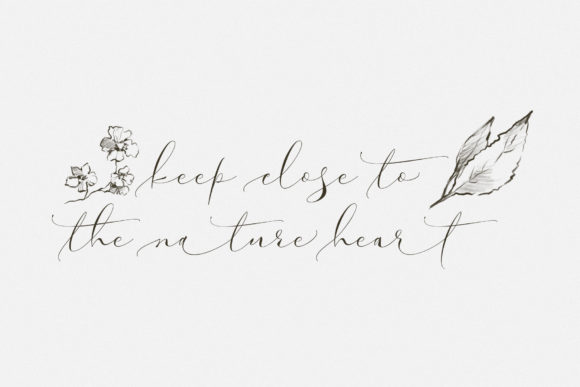 keep close to
the nature heart